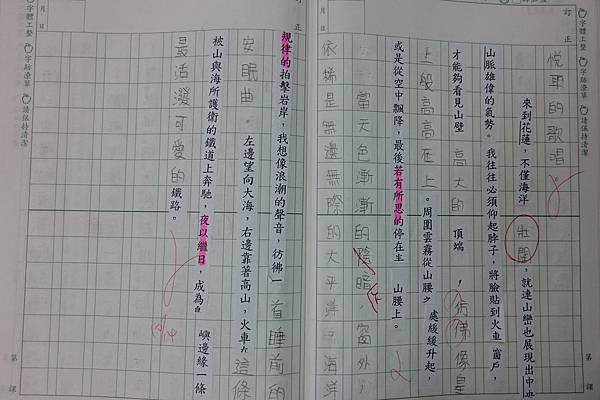 字體工整 字跡潦草 請保持清潔
訂正
月 日
悅耳的歌唱。
來到花蓮，不僅海洋壯闊，就連山巒也展現出中央
山脈雄偉的氣勢。我往往必須仰起脖子，將臉貼到火車窗戶，
才能夠看見山壁高大的頂端，彷彿像皇
上般高高在上。周圍雲霧從山腰處緩緩升起，
或是從空中飄降，最後若有所思的停在半山腰上。
當天色漸漸的陰暗，窗外
依稀是無邊無際的太平洋。海洋
第 課
規律的拍擊岩岸，我想像浪潮的聲音，彷彿一首睡前的
安眠曲。左邊望向大海，右邊靠著高山，火車 這條
被山與海所護衛的鐵道上奔馳，夜以繼日，成為 嶼邊緣一條
最活潑可愛的鐵路。
訂正
月 日
字體工整 字跡潦草 請保持清潔
第 課